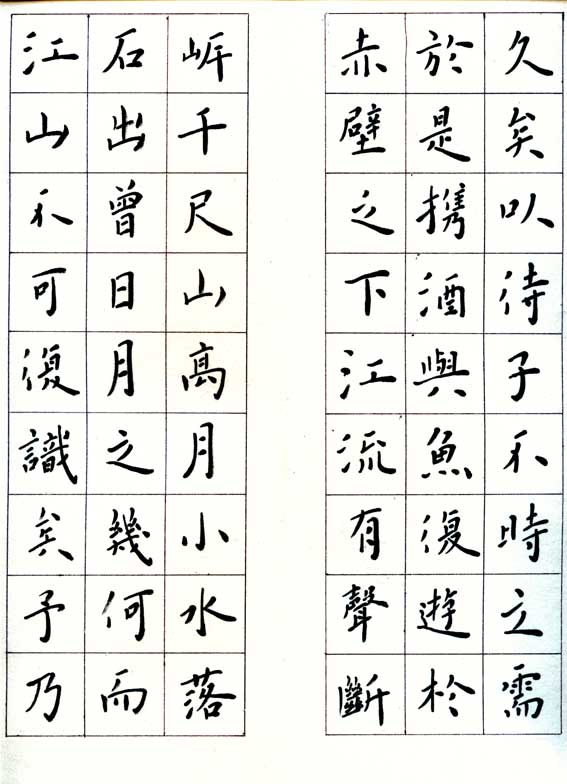 久矣以待子不時之需
於是携酒與魚復遊於
赤壁之下江流有聲斷
岸千尺山高月小水落
石出曾日月之幾何而
江山不可復識矣予乃